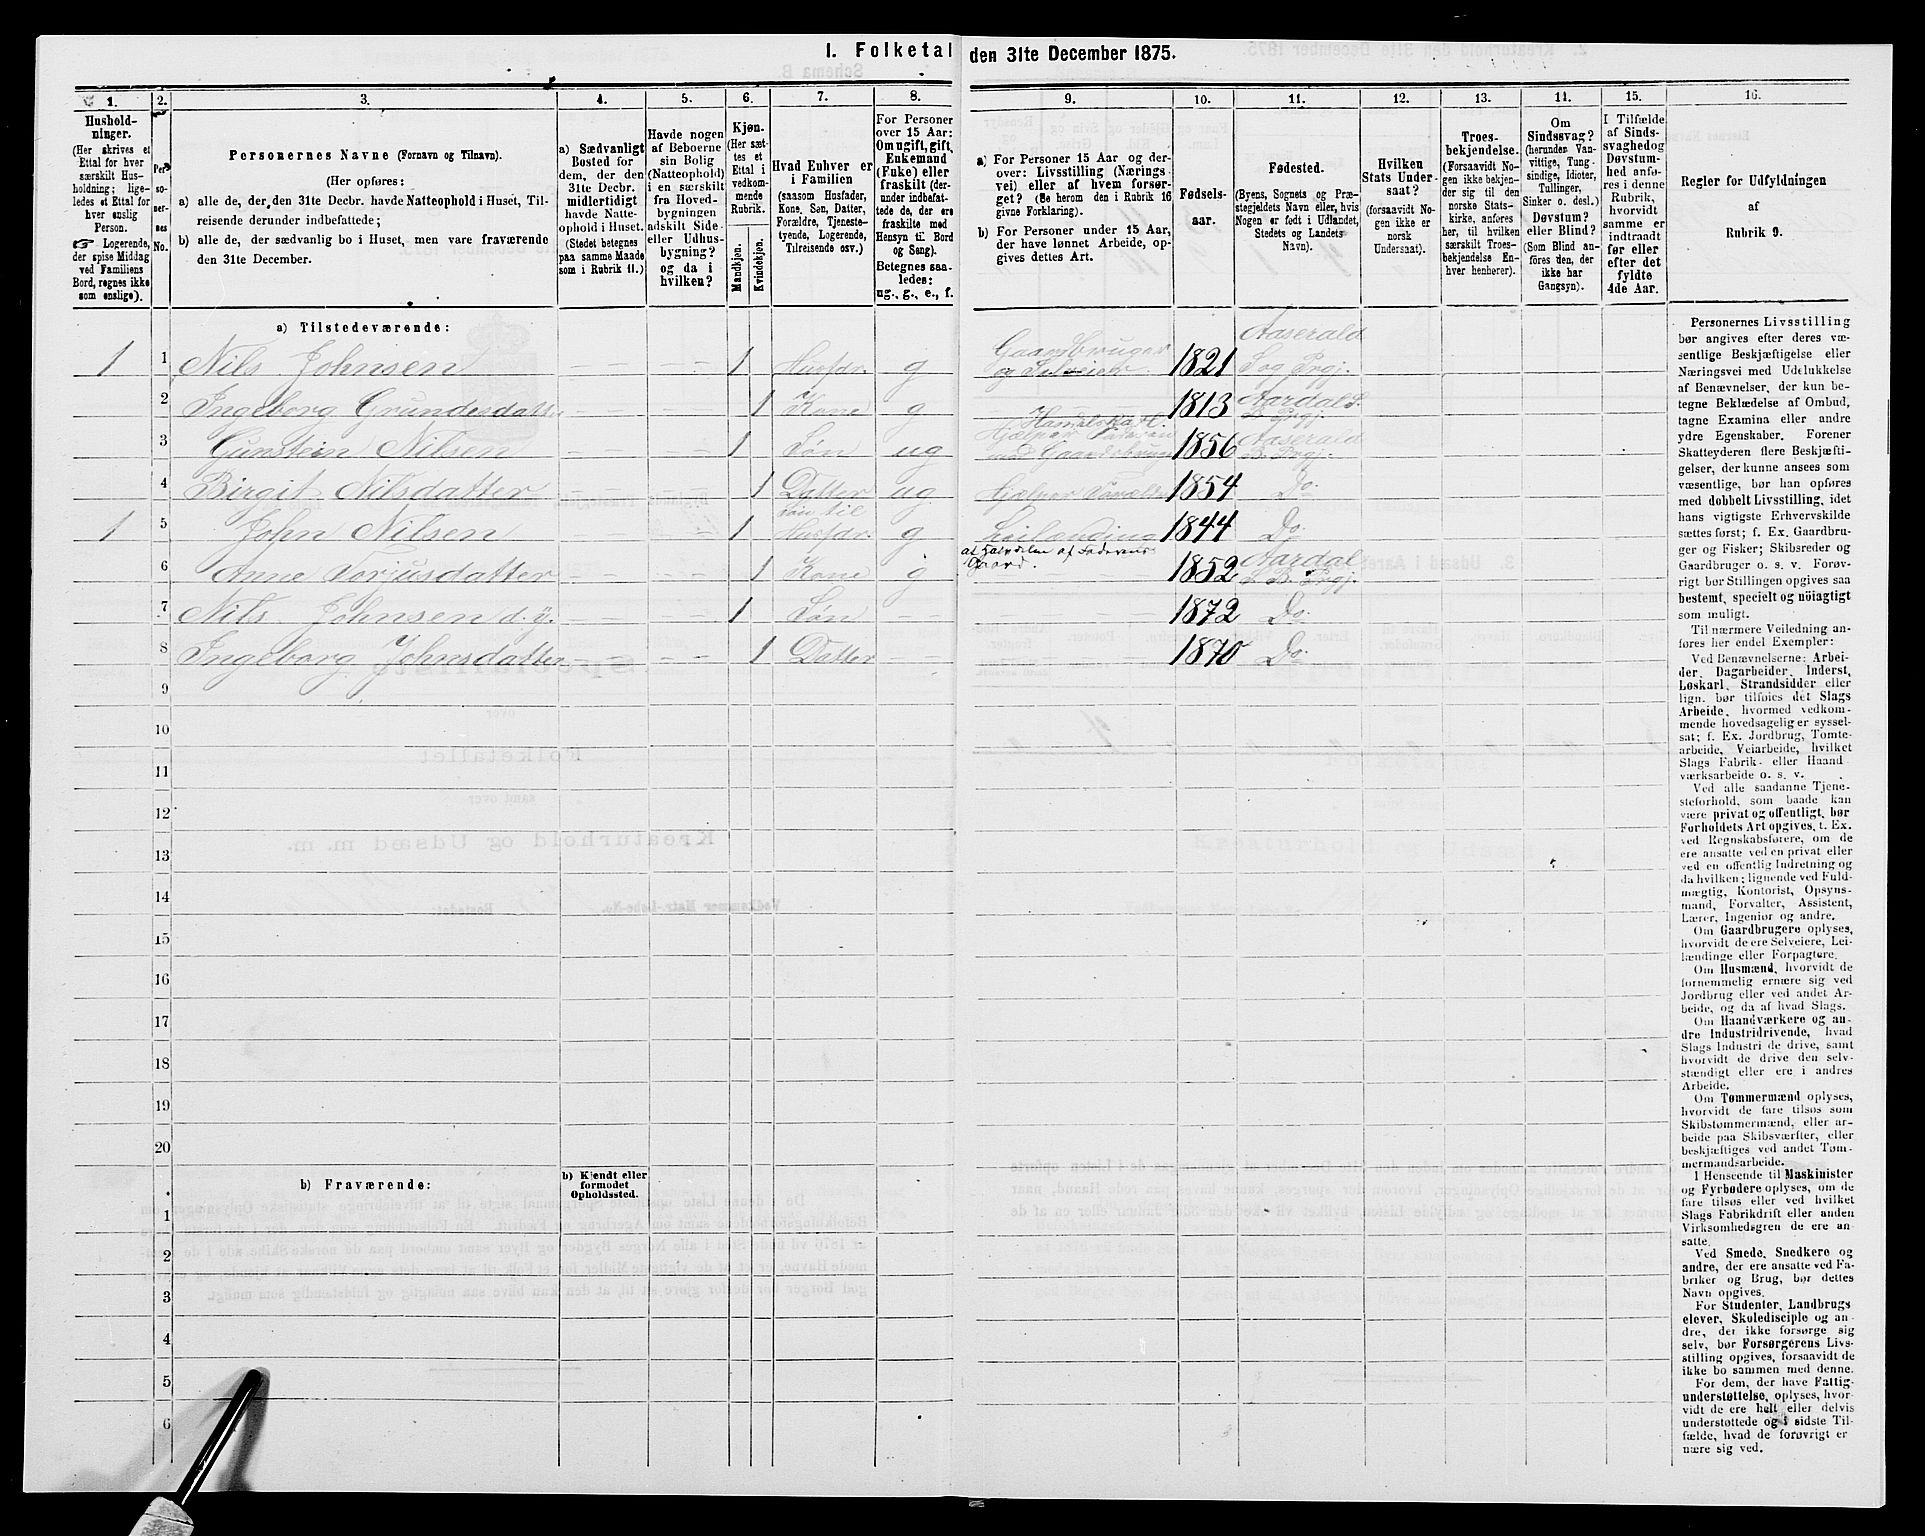 I. Folketal den 31te December 1875.
1. 2. 3. 4. 5. 6. 7. 8. 9. 10. 11. 12. 13. 14. 15. 16.
Hushold-
ninger.
(Her skrives et
Ettal for hver
særskilt Hus-
holdning; lige-
ledes et Ettal for
hver enslig
Person.
☞ Logerende,
der spise Middag
ved Familiens
Bord, regnes ikke
som enslige).
Per-
so-
ner-
nes
No.
Personernes Navne (Fornavn og Tilnavn).
(Her opføres:
a) alle de, der den 31te Decbr. havde Natteophold i Huset, Til-
reisende derunder indbefattede;
b) alle de, der sædvanlig bo i Huset, men vare fraværende
den 31te December.
a) Sædvanligt
Bosted for
dem, der den
31te Decbr.
midlertidigt
havde Natte-
ophold i Huset.
(Stedet betegnes
paa samme Maade
som i Rubrik 11.)
Havde nogen
af Beboerne
sin Bolig
(Natteophold)
i en særskilt
fra Hoved-
bygningen
adskilt Side-
eller Udhus-
bygning?
og da i
hvilken?
Kjøn.
(Her sæt-
tes et
Ettal i
vedkom-
mende
Rubrik.
Mandkjøn.
Kvindekjøn.
Hvad Enhver er
i Familien
(saasom Husfader,
Kone, Søn, Datter,
Forældre, Tjeneste-
tyende, Logerende,
Tilreisende osv.)
For Personer
over 15 Aar:
Om ugift, gift,
Enkemand
(Enke) eller
fraskilt (der-
under indbefat-
tede de, der ere
fraskilte med
Hensyn til Bord
og Seng).
Betegnes saa-
ledes:
ug., g., e., f.
a) For Personer 15 Aar og der-
over: Livsstilling (Nærings-
vei) eller af hvem forsør-
get? (Se herom den i Rubrik 16
givne Forklaring).
b) For Personer under 15 Aar,
der have lønnet Arbeide, op-
gives dettes Art.
Fødsels-
aar.
Fødested.
(Byens, Sognets og Præ-
stegjeldets Navn eller, hvis
Nogen er født i Udlandet,
Stedets og Landets
Navn).
Hvilken
Stats Under-
saat?
(forsaavidt No-
gen ikke er
norsk
Undersaat).
Troes-
bekjendelse.
(Forsaavidt No-
gen ikke bekjen-
der sig til den
norske Stats-
kirke, anføres
her, til hvilken
særskilt Troes-
bekjendelse En-
hver henhører).
Om
Sindssvag?
(herunder Van-
vittige, Tung-
sindige, Idioter,
Tullinger,
Sinker o. desl.)
Døvstum?
eller Blind?
(Som Blind an-
føres den, der
ikke har
Gangsyn).
I Tilfælde
af Sinds-
svaghed og
Døvstum-
hed anfø-
res i denne
Rubrik,
hvorvidt
samme er
indtraadt
før eller
efter det
fyldte
4de Aar.
Regler for Udfyldningen
af
Rubrik 9.
a) Tilstedeværende:
1 1 Nils Johnsen - - 1 Husfdr. g Gaardbruger og Selveier 1821 Aaserald S og Prgj.
2 Ingeborg Grundesdatter - - 1 Kone g 1813 Aardal S. B. Prgj.
3 Gunstein Nilsen - - 1 Søn ug Hjælper Faderen med Gaardsbruget 1856 Aaserald B. Prgj.
4 Birgit Nilsdatter - - 1 Datter ug Hjælper Forældre 1854 Do.
1 5 John Nilsen - - 1 Søn til Husfdr. g Leilænding af Halvdelen af Faderens Gaard. 1844 Do.
6 Anne Torjusdatter - - 1 Kone g 1852 Aardal S B. Prgj.
7 Nils Johnsen d. y. - - 1 Søn - 1872 Do.
8 Ingeborg Johnsdatter - - 1 Datter - 1870 Do.
9
10
11
12
13
14
15
16
17
18
19
20
b) Fraværende:
b) Kjendt eller
formodet
Opholdssted.
1
2
3
4
5
6
Personernes Livsstilling
bør angives efter deres væ-
sentlige Beskjæftigelse eller
Næringsvei med Udelukkelse
af Benævnelser, der kun be-
tegne Beklædelse af Ombud,
tagne Examina eller andre
ydre Egenskaber. Forener
Skatteyderen flere Beskjæfti-
gelser, der kunne ansees som
væsentlige, bør han opføres
med dobbelt Livsstilling, idet
hans vigtigste Erhvervskilde
sættes først; f. Ex. Gaardbru-
ger og Fisker; Skibsreder og
Gaardbruger o. s. v. Forøv-
rigt bør Stillingen opgives saa
bestemt, specielt og nöiagtigt
som muligt.
Til nærmere Veiledning an-
føres her endel Exempler:
Ved Benævnelserne: Arbei-
der, Dagarbeider, Inderst,
Løskarl, Strandsidder eller
lign. bør tilføies det Slags
Arbeide, hvormed vedkom-
mende hovedsagelig er syssel-
sat; f. Ex. Jordbrug, Tomte-
arbeide, Veiarbeide, hvilket
Slags Fabrik- eller Haand-
værksarbeide o. s. v.
Ved alle saadanne Tjene-
steforhold, som baade kan
være privat og offentligt, bør
Forholdets Art opgives, t. Ex.
ved Regnskabsførere, om de
ere ansatte ved en privat eller
ved en offentlig Indretning og
da hvilken; lignende ved Fuld-
mægtig, Kontorist, Opsyns-
mand, Forvalter, Assistent,
Lærer, Ingeniør og andre.
Om Gaardbrugere oplyses,
hvorvidt de ere Selveiere, Lei-
lændinge eller Forpagtere.
Om Husmænd, hvorvidt de
fornemmelig ernære sig ved
Jordbrug eller ved andet Ar-
beide, og da af hvad Slags.
Om Haandværkere og an-
dre Industridrivende, hvad
Slags Industri de drive, samt
hvorvidt de drive den selv-
stændigt eller ere i andres
Arbeide.
Om Tømmermænd oplyses,
hvorvidt de fare tilsøs som
Skibstømmermænd, eller ar-
beide paa Skibsværfter, eller
beskjæftiges ved andet Tøm-
mermandsarbeide.
I Henseende til Maskinister
og Fyrbødere oplyses, om de
fare tilsøs eller ved hvilket
Slags Fabrikdrift eller anden
Virksomhedsgren de ere an-
satte.
Ved Smede, Snedkere og
andre, der ere ansatte ved Fa-
briker og Brug, bør dettes
Navn opgives.
For Studenter, Landbrugs
elever, Skoledisciple og an-
dre, der ikke forsørge sig
selv, bør Forsørgerens Livs-
stilling opgives, forsaavidt de
ikke bo sammen med denne.
For dem, der have Fattig-
understøttelse, oplyses, hvor-
vidt de ere helt eller delvis
understøttede og i sidste Til-
fælde, hvad de forøvrigt er
nære sig ved.